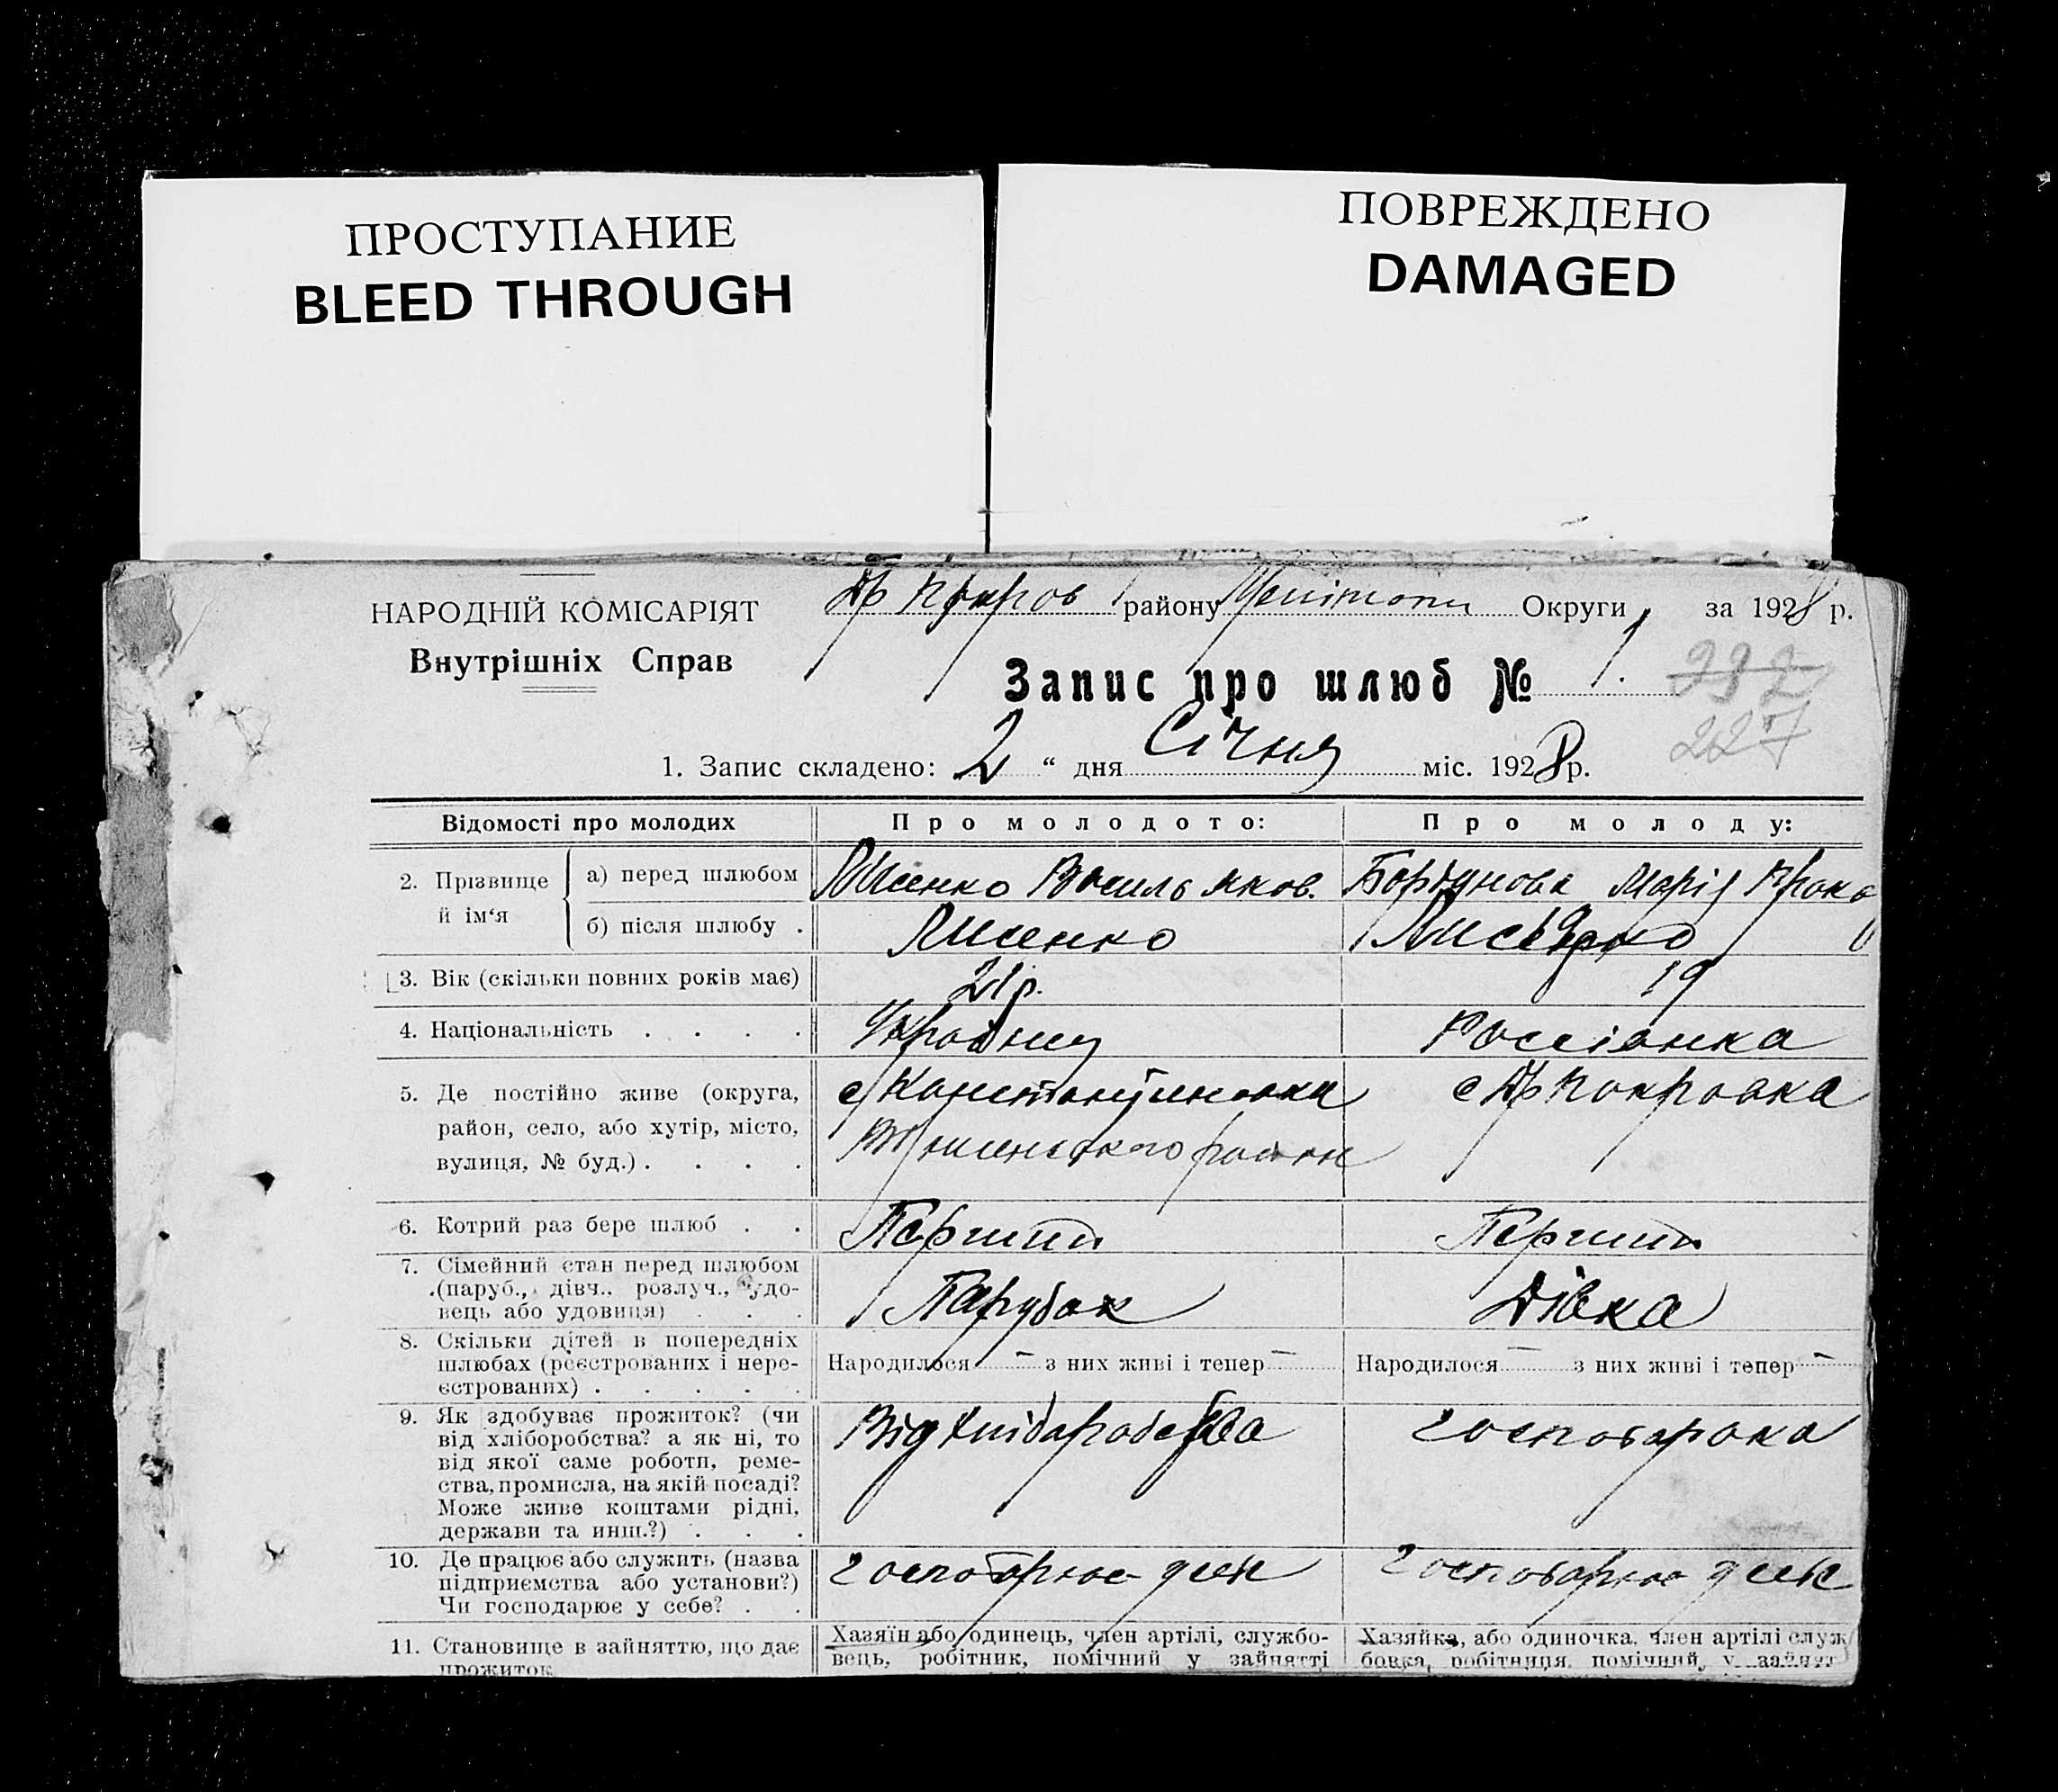 ПРОСТУПАНИЕ
BLEED THROUGH
ПОВРЕЖДЕНО
DAMAGED
НАРОДНІЙ КОМІСАРІЯТ
Внутрішніх Справ
району Округи за 1928 р.
Запис про шлюб № 1.
992
227
1. Запис складено: 2 " дня Січня міс. 1928 р.
Відомості про молодих Про молодого: Про молоду:
2. Прізвище й ім'я а) перед шлюбом Лисенко Василь Яков. Бордунова Марія
б) після шлюбу . Лисенко Лисенко
3. Вік (скільки повних років має) 21 р. 19
4. Національність . . . . Россіянка
5. Де постійно живе (округа,
район, село, або хутір, місто,
вулиця, № буд.) . . . .
с Константиновка
район
с Покровка
6. Котрий раз бере шлюб . . Перший Перший
7. Сімейний стан перед шлюбом
(паруб., дівч., розлуч., удо-
вець або удовиця) . . .
Парубок Дівка
8. Скільки дітей в попередніх
шлюбах (реєстрованих і нере-
єстрованих) . . . . .
Народилося — з них живі і тепер — Народилося — з них живі і тепер —
9. Як здобуває прожиток? (чи
від хліборобства? а як ні, то
від якої саме роботи, реме-
ства, промисла, на якій посаді?
Може живе коштами рідні,
держави та инш.?) . . .
Від хліборобства
10. Де працює або служить (назва
підприємства або установи?)
Чи господарює у себе? . .
господарює господарює
11. Становище в зайняттю, що дає
прожиток
Хазяїн або одинець, член артілі, службо-
вець, робітник, помічний у зайнятті
Хазяйка, або одиночка, член артілі служ
бовка, робітниця, помічний у зайнят